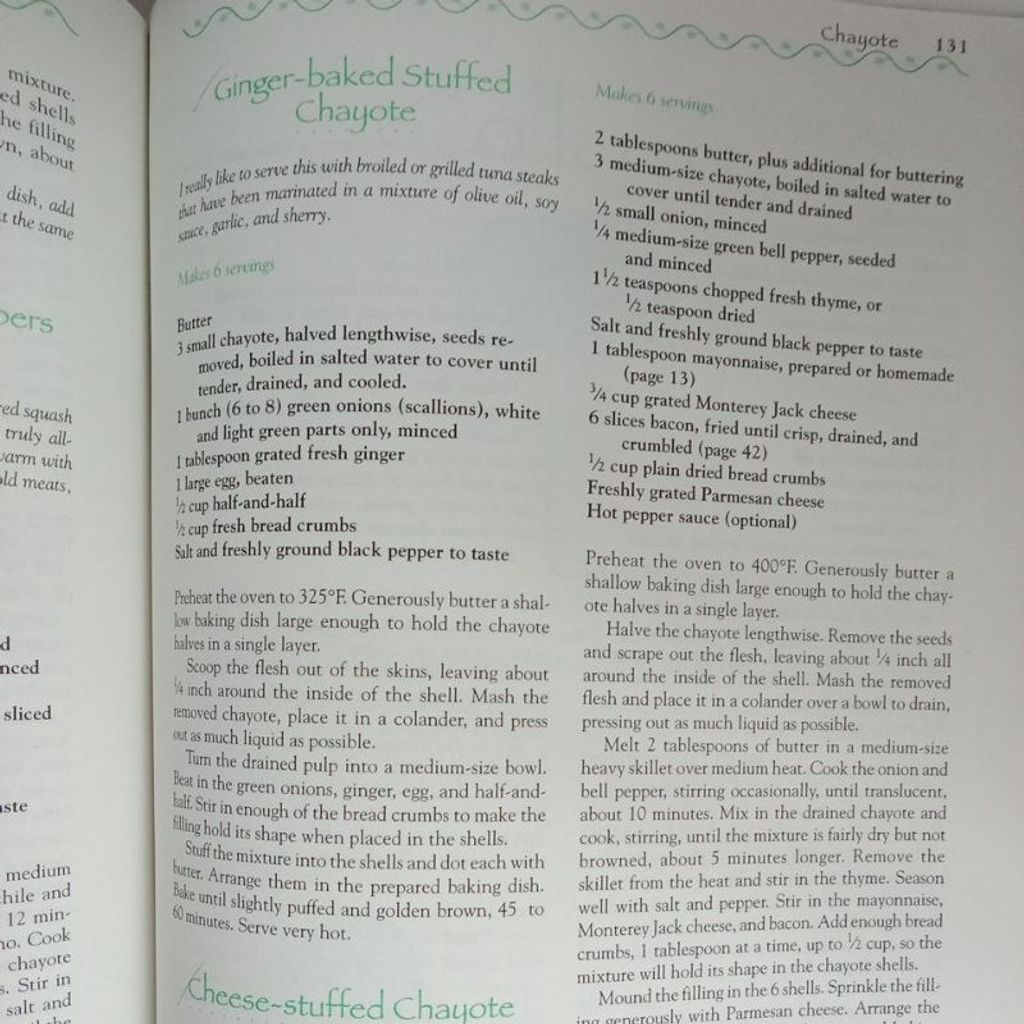 mixture.
ed shells
he filling
vn, about
dish, add
t the same
pers
red squash
truly all-
varm with
old meats,
d
nced
sliced
aste
medium
hile and
12 min-
no. Cook
chayote
s. Stir in
salt and
Chayote 131
Ginger-baked Stuffed
Chayote
I really like to serve this with broiled or grilled tuna steaks
that have been marinated in a mixture of olive oil, soy
sauce, garlic, and sherry.
Makes 6 servings
Butter
3 small chayote, halved lengthwise, seeds re-
moved, boiled in salted water to cover until
tender, drained, and cooled.
1 bunch (6 to 8) green onions (scallions), white
and light green parts only, minced
1 tablespoon grated fresh ginger
1 large egg, beaten
½ cup half-and-half
½ cup fresh bread crumbs
Salt and freshly ground black pepper to taste
Preheat the oven to 325°F. Generously butter a shal-
low baking dish large enough to hold the chayote
halves in a single layer.
Scoop the flesh out of the skins, leaving about
¼ inch around the inside of the shell. Mash the
removed chayote, place it in a colander, and press
out as much liquid as possible.
Turn the drained pulp into a medium-size bowl.
Beat in the green onions, ginger, egg, and half-and-
half. Stir in enough of the bread crumbs to make the
filling hold its shape when placed in the shells.
Stuff the mixture into the shells and dot each with
butter. Arrange them in the prepared baking dish.
Bake until slightly puffed and golden brown, 45 to
60 minutes. Serve very hot.
Cheese-stuffed Chayote
Makes 6 servings
2 tablespoons butter, plus additional for buttering
3 medium-size chayote, boiled in salted water to
cover until tender and drained
½ small onion, minced
¼ medium-size green bell pepper, seeded
and minced
1½ teaspoons chopped fresh thyme, or
½ teaspoon dried
Salt and freshly ground black pepper to taste
1 tablespoon mayonnaise, prepared or homemade
(page 13)
¾ cup grated Monterey Jack cheese
6 slices bacon, fried until crisp, drained, and
crumbled (page 42)
½ cup plain dried bread crumbs
Freshly grated Parmesan cheese
Hot pepper sauce (optional)
Preheat the oven to 400°F. Generously butter a
shallow baking dish large enough to hold the chay-
ote halves in a single layer.
Halve the chayote lengthwise. Remove the seeds
and scrape out the flesh, leaving about ¼ inch all
around the inside of the shell. Mash the removed
flesh and place it in a colander over a bowl to drain,
pressing out as much liquid as possible.
Melt 2 tablespoons of butter in a medium-size
heavy skillet over medium heat. Cook the onion and
bell pepper, stirring occasionally, until translucent,
about 10 minutes. Mix in the drained chayote and
cook, stirring, until the mixture is fairly dry but not
browned, about 5 minutes longer. Remove the
skillet from the heat and stir in the thyme. Season
well with salt and pepper. Stir in the mayonnaise,
Monterey Jack cheese, and bacon. Add enough bread
crumbs, 1 tablespoon at a time, up to ½ cup, so the
mixture will hold its shape in the chayote shells.
Mound the filling in the 6 shells. Sprinkle the fill-
ing generously with Parmesan cheese. Arrange the